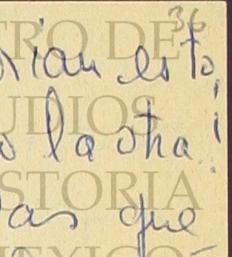 36
TRO DE
rian esto,
UDIOS
o la otra!
STORIA
as que
MEXICO